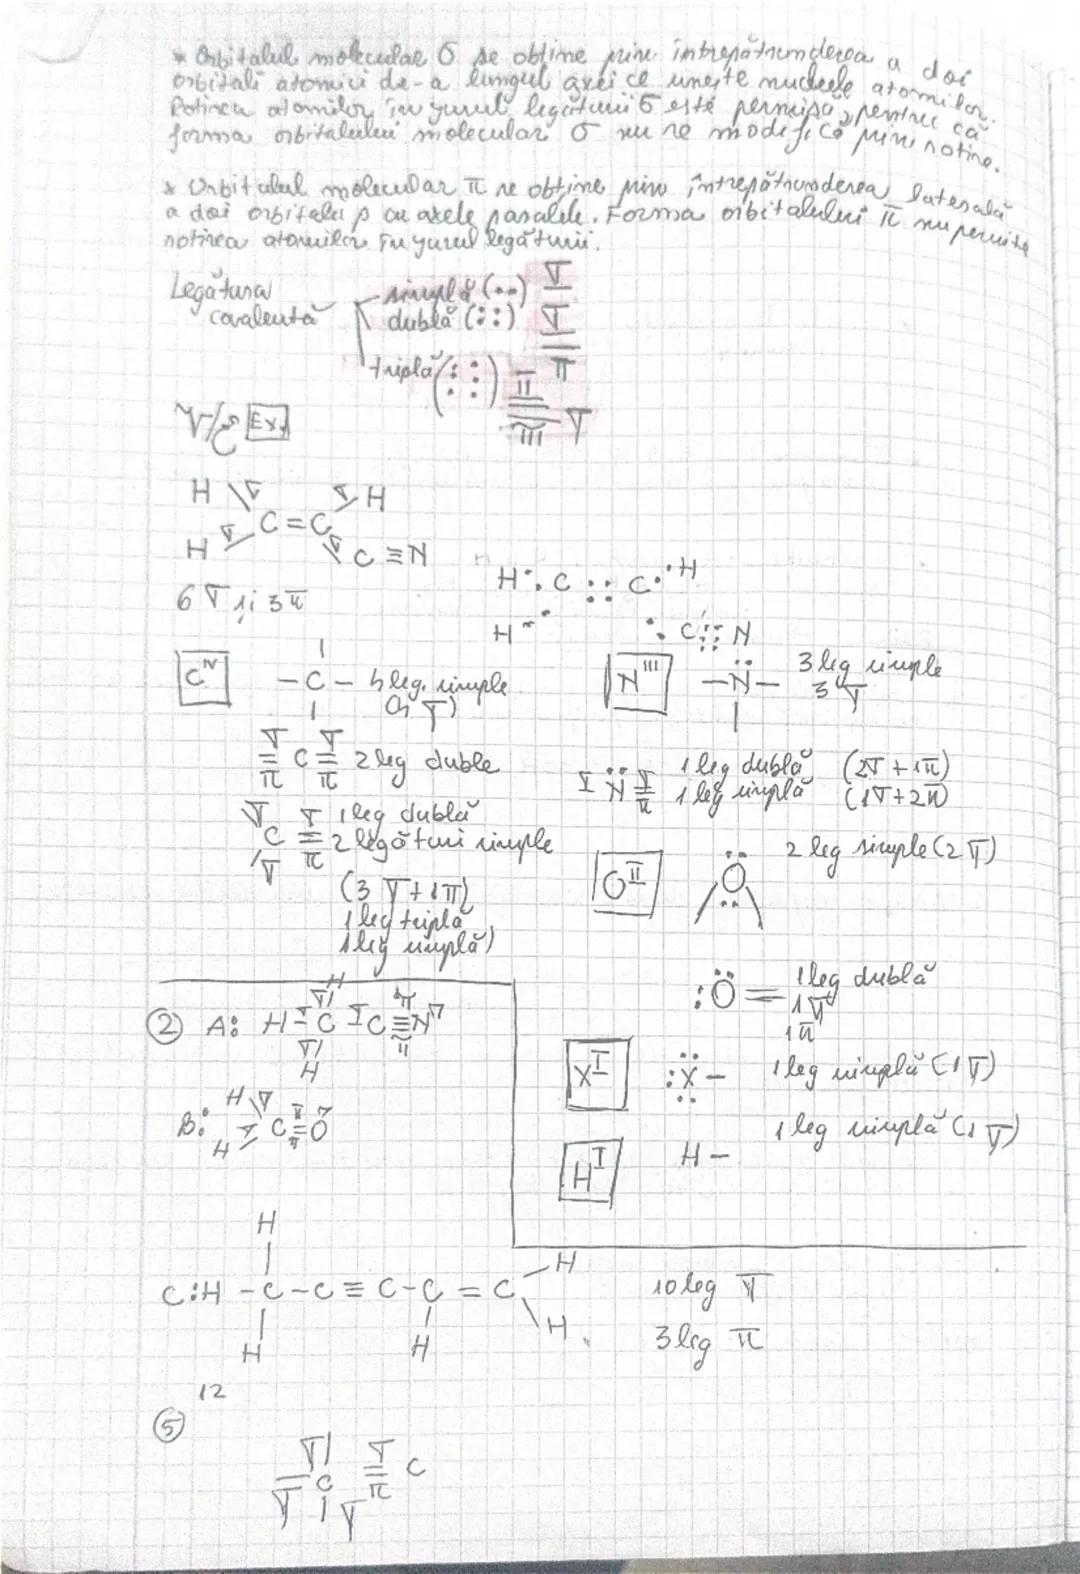 * Orbitalul molecular σ se obține prin întrepătrunderea a doi
orbitali atomici de-a lungul axei ce unește nucleele atomilor.
Rotirea atomilor în jurul legăturii σ este permisă, pentru că
forma orbitalului molecular σ nu se modifică prin rotire.
* Orbitalul molecular π se obține prin întrepătrunderea laterală
a doi orbitali p cu axele paralele. Forma orbitalului π nu permite
rotirea atomilor în jurul legăturii.
Legătura covalentă
simplă (••) σ
dublă (::) σ π
triplă (:::) π π σ
Ex.
H σ σ H
C = C
H σ σ C ≡ N
6 σ și 3 π
H C :: C H
H C N
C IV
– C – 4 leg. simple
(4 σ)
σ σ
= C = 2 leg duble
π π
σ σ 1 leg dublă
C = 2 legături simple
σ π
(3 σ + 1π)
1 leg triplă
1 leg simplă)
N III
–N– 3 leg simple
3 σ
σ N σ π 1 leg dublă (2σ + 1π)
1 leg simplă (1σ+2π)
O II
O 2 leg simple (2 σ)
:Ö= 1 leg dublă
1 σ
1 π
X I
:X– 1 leg simplă (1 σ)
H I
H – 1 leg simplă (1 σ)
② A: H – C – C ≡ N
H H
B: H σ
H σ C = O
H
C: H – C – C ≡ C – C = C – H
H H H
10 leg σ
3 leg π
12
⑤
σ σ C
σ C σ π